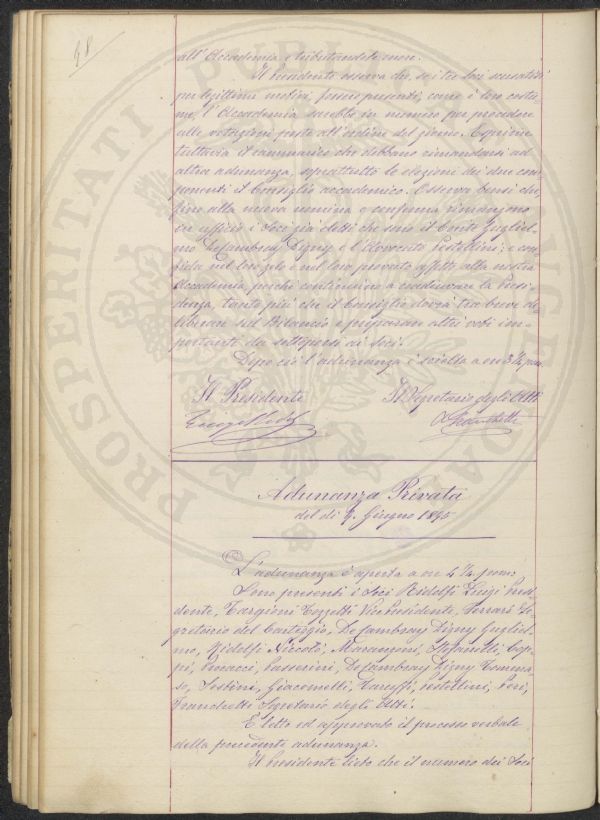 48
all'Accademia e tributandole onore.
Il Presidente osserva che, se i tre Soci scusatisi
per legittimi motivi, fossero presenti, come è loro costu-
me, l'Accademia sarebbe in numero per procedere
alle votazioni poste all'ordine del giorno. Esprime
tuttavia il rammarico che debbano rimandarsi ad
altra adunanza, soprattutto le elezioni dei due com-
ponenti il Consiglio accademico. Osserva bensì che
fino alla nuova nomina o conferma rimangono
in ufficio i Soci già eletti che sono il Conte Gugliel-
mo De Cambray Digny e l'Avvocato Pestellini; e con-
fida nel loro zelo e nel loro provato affetto alla nostra
Accademia, perchè continuino a coadiuvare la Presi-
denza, tanto più che il Consiglio dovrà tra breve de-
liberare sul Bilancio e preparare altri voti im-
portante da sottoporsi ai Soci.
Dopo ciò l'adunanza è sciolta a ore 3 ¼ pom.
Il Presidente Il Segretario degli Atti
Luigi Ridolfi Franchetti
Adunanza Privata
del dì 9. Giugno 1895
L'adunanza è aperta a ore 4 ¼ pom.
Sono presenti i Soci Ridolfi Luigi Presi-
dente, Targioni Tozzetti Vice Presidente, Ferrari Se-
gretario del Carteggio, De Cambray Digny Gugliel-
mo, Ridolfi Niccolò, Marangoni, Stefanelli, Cop-
pi, Vovacci, Passerini, De Cambray Digny Tomma-
so, Sestini, Giacomelli, Caruffi, Pestellini, Peri,
Franchetti Segretario degli Atti.
È letto ed approvato il processo verbale
della precedente adunanza.
Il Presidente lieto che il numero dei Soci
PROSPERITATI PUBLICAE AUGENDAE